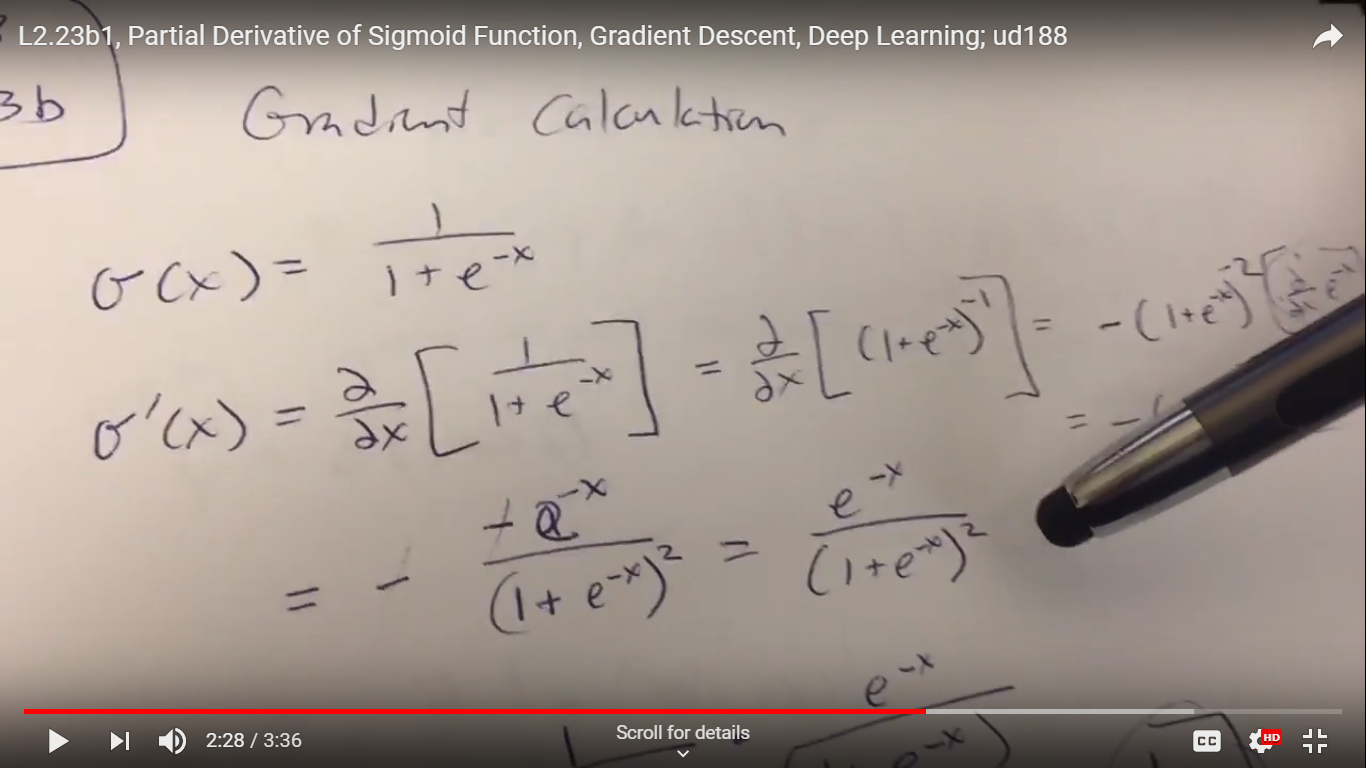 L2.23b1, Partial Derivative of Sigmoid Function, Gradient Descent, Deep Learning; ud188
3b
Gradient Calculation
σ(x) = 1 / (1 + e^-x)
σ'(x) = ∂/∂x [1 / (1 + e^-x)] = ∂/∂x [(1+e^-x)^-1] = -(1+e^-x)^-2 [
= -
= - -e^-x / (1 + e^-x)^2 = e^-x / (1+e^-x)^2
e^-x
2:28 / 3:36
Scroll for details
CC
HD